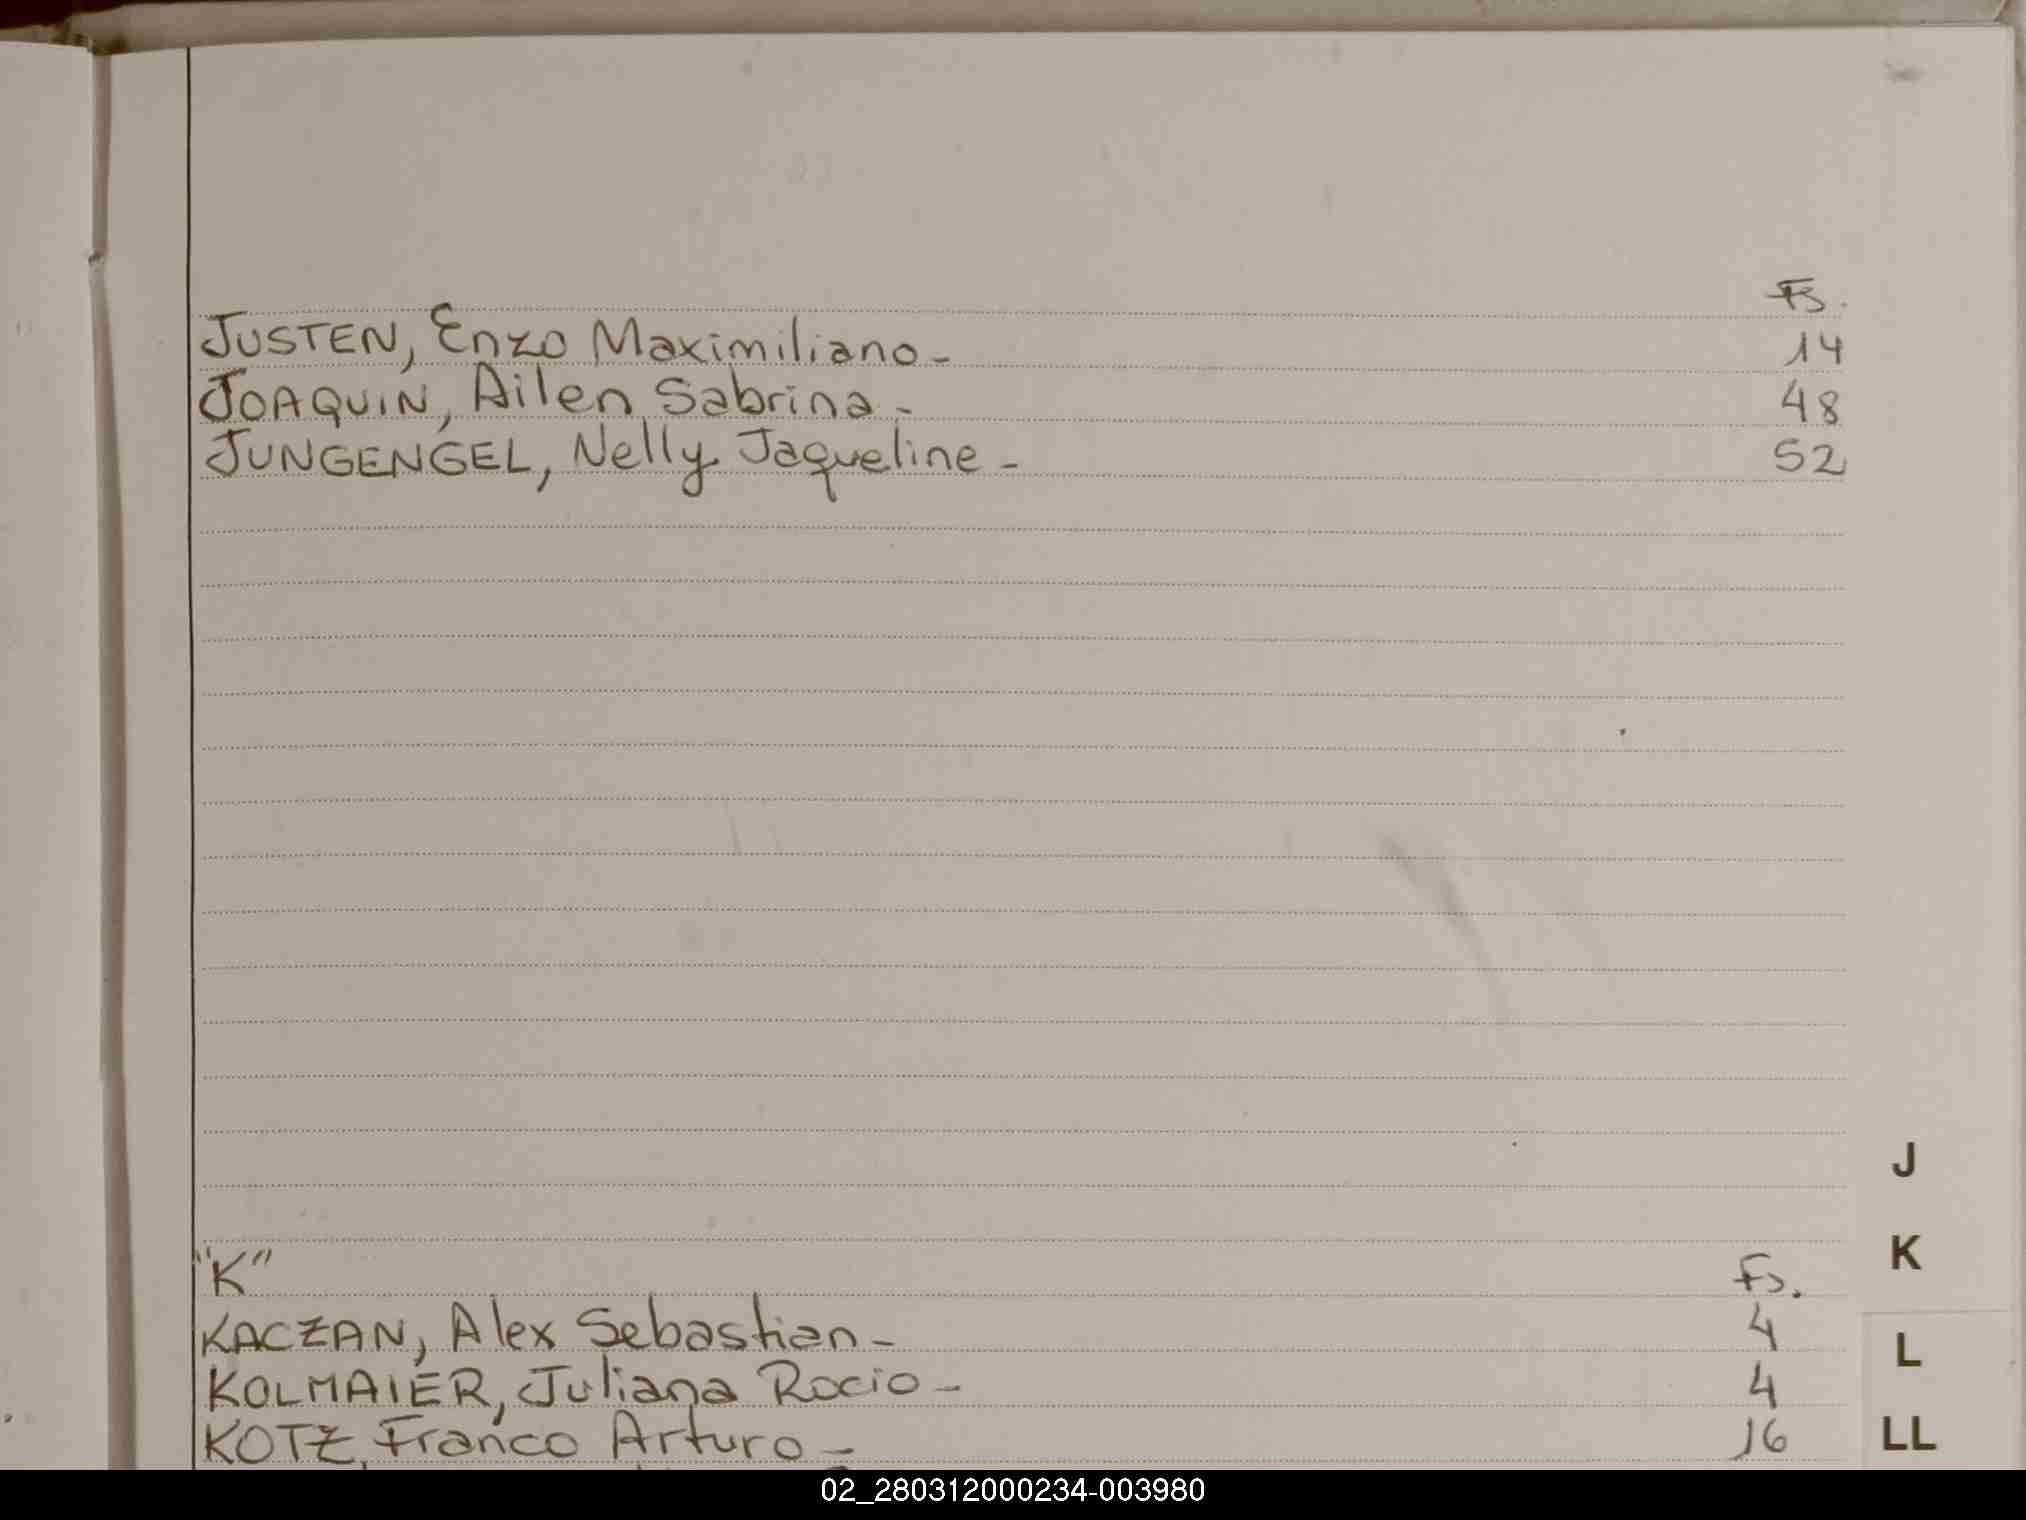 Fs.
JUSTEN, Enzo Maximiliano- 14
JOAQUIN, Ailen Sabrina- 48
JUNGENGEL, Nelly Jaqueline- 52
J
"K" Fs.
K
KACZAN, Alex Sebastian- 4
L
KOLMAIER, Juliana Rocio- 4
KOTZ, Franco Arturo- 16
LL
02_280312000234-003980